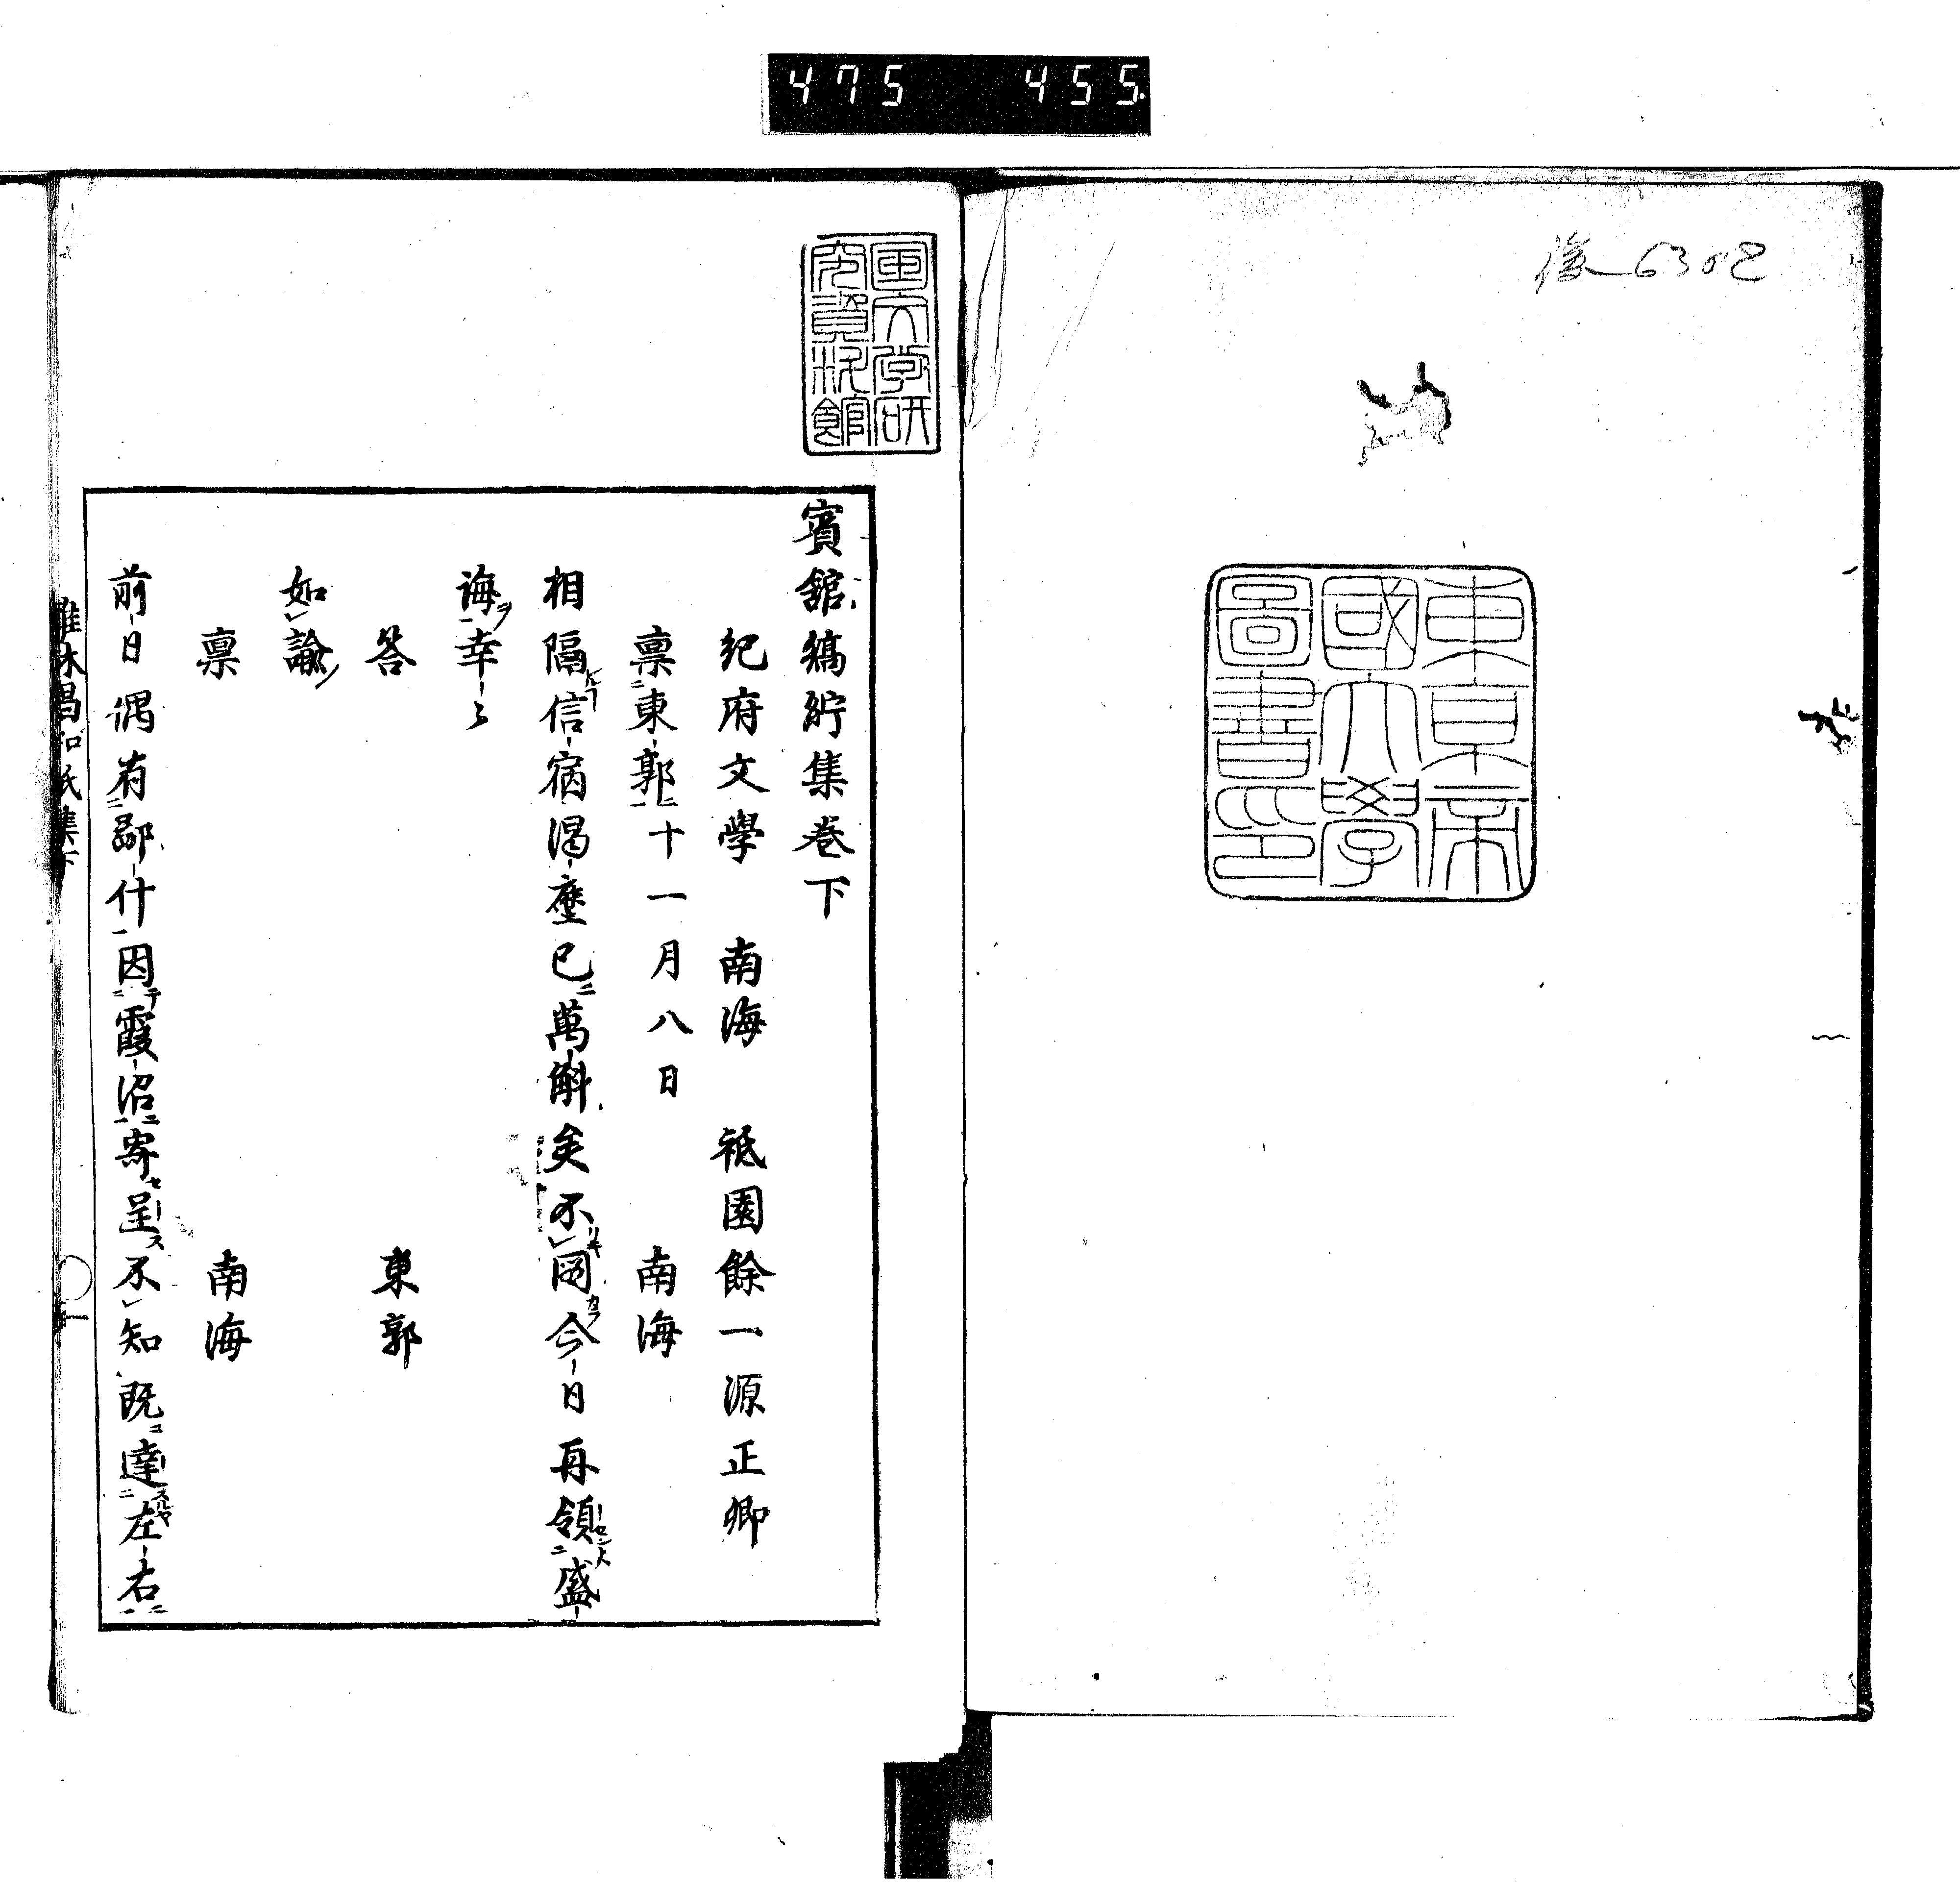 475 455
復6302
東京帝
國大學
圖書印
国文学研
究資料館
賓館縞紵集卷下
紀府文學 南海 祗園餘一源正卿
稟東郭二十一月八日 南海
相隔信宿渇塵已萬斛矣不図今日再領盛
誨幸〻
答 東郭
如諭
稟 南海
前日偶有鄙什因霞沼寄呈不知既達左右